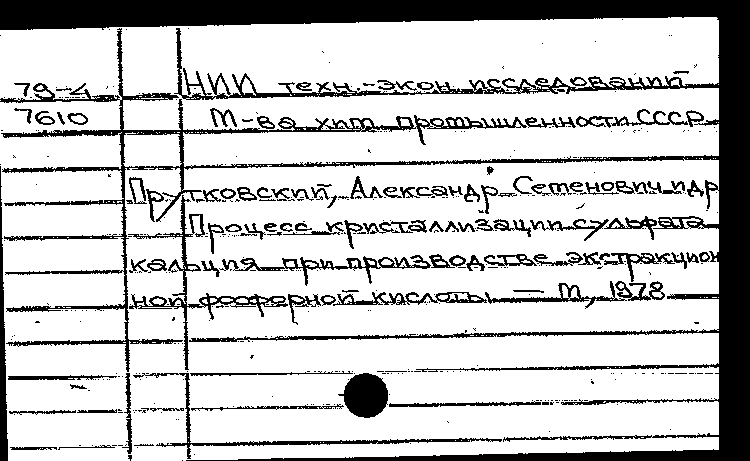 79-4 НИИ техн.-экон. исследований
7610 М-ва хим. промышленности СССР
Александр Семенович и др
Процесс кристаллизации сульфата
кальция при производстве экстракцион
ной фосфорной кислоты — М, 1978